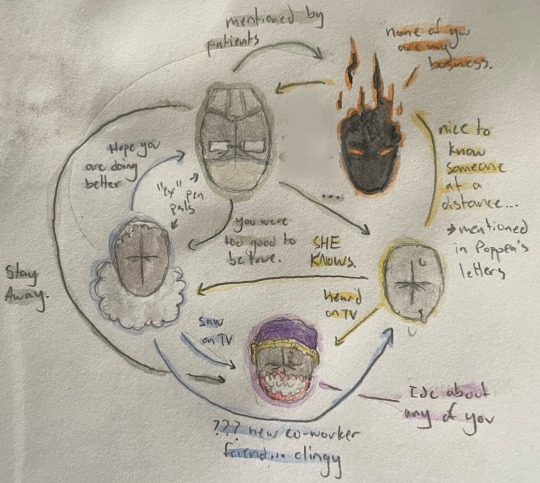 mentioned by
patients
none of you
are my
business.
nice to
know
someone
at a
distance...
→ mentioned
in Poppen's
letters
Hope you
are doing
better
"ex" pen
pals
...
you were
too good to
be true.
SHE
KNOWS.
Stay
Away.
saw
on TV
heard
on TV
Idc about
any of you
??? new co-worker
friend... clingy